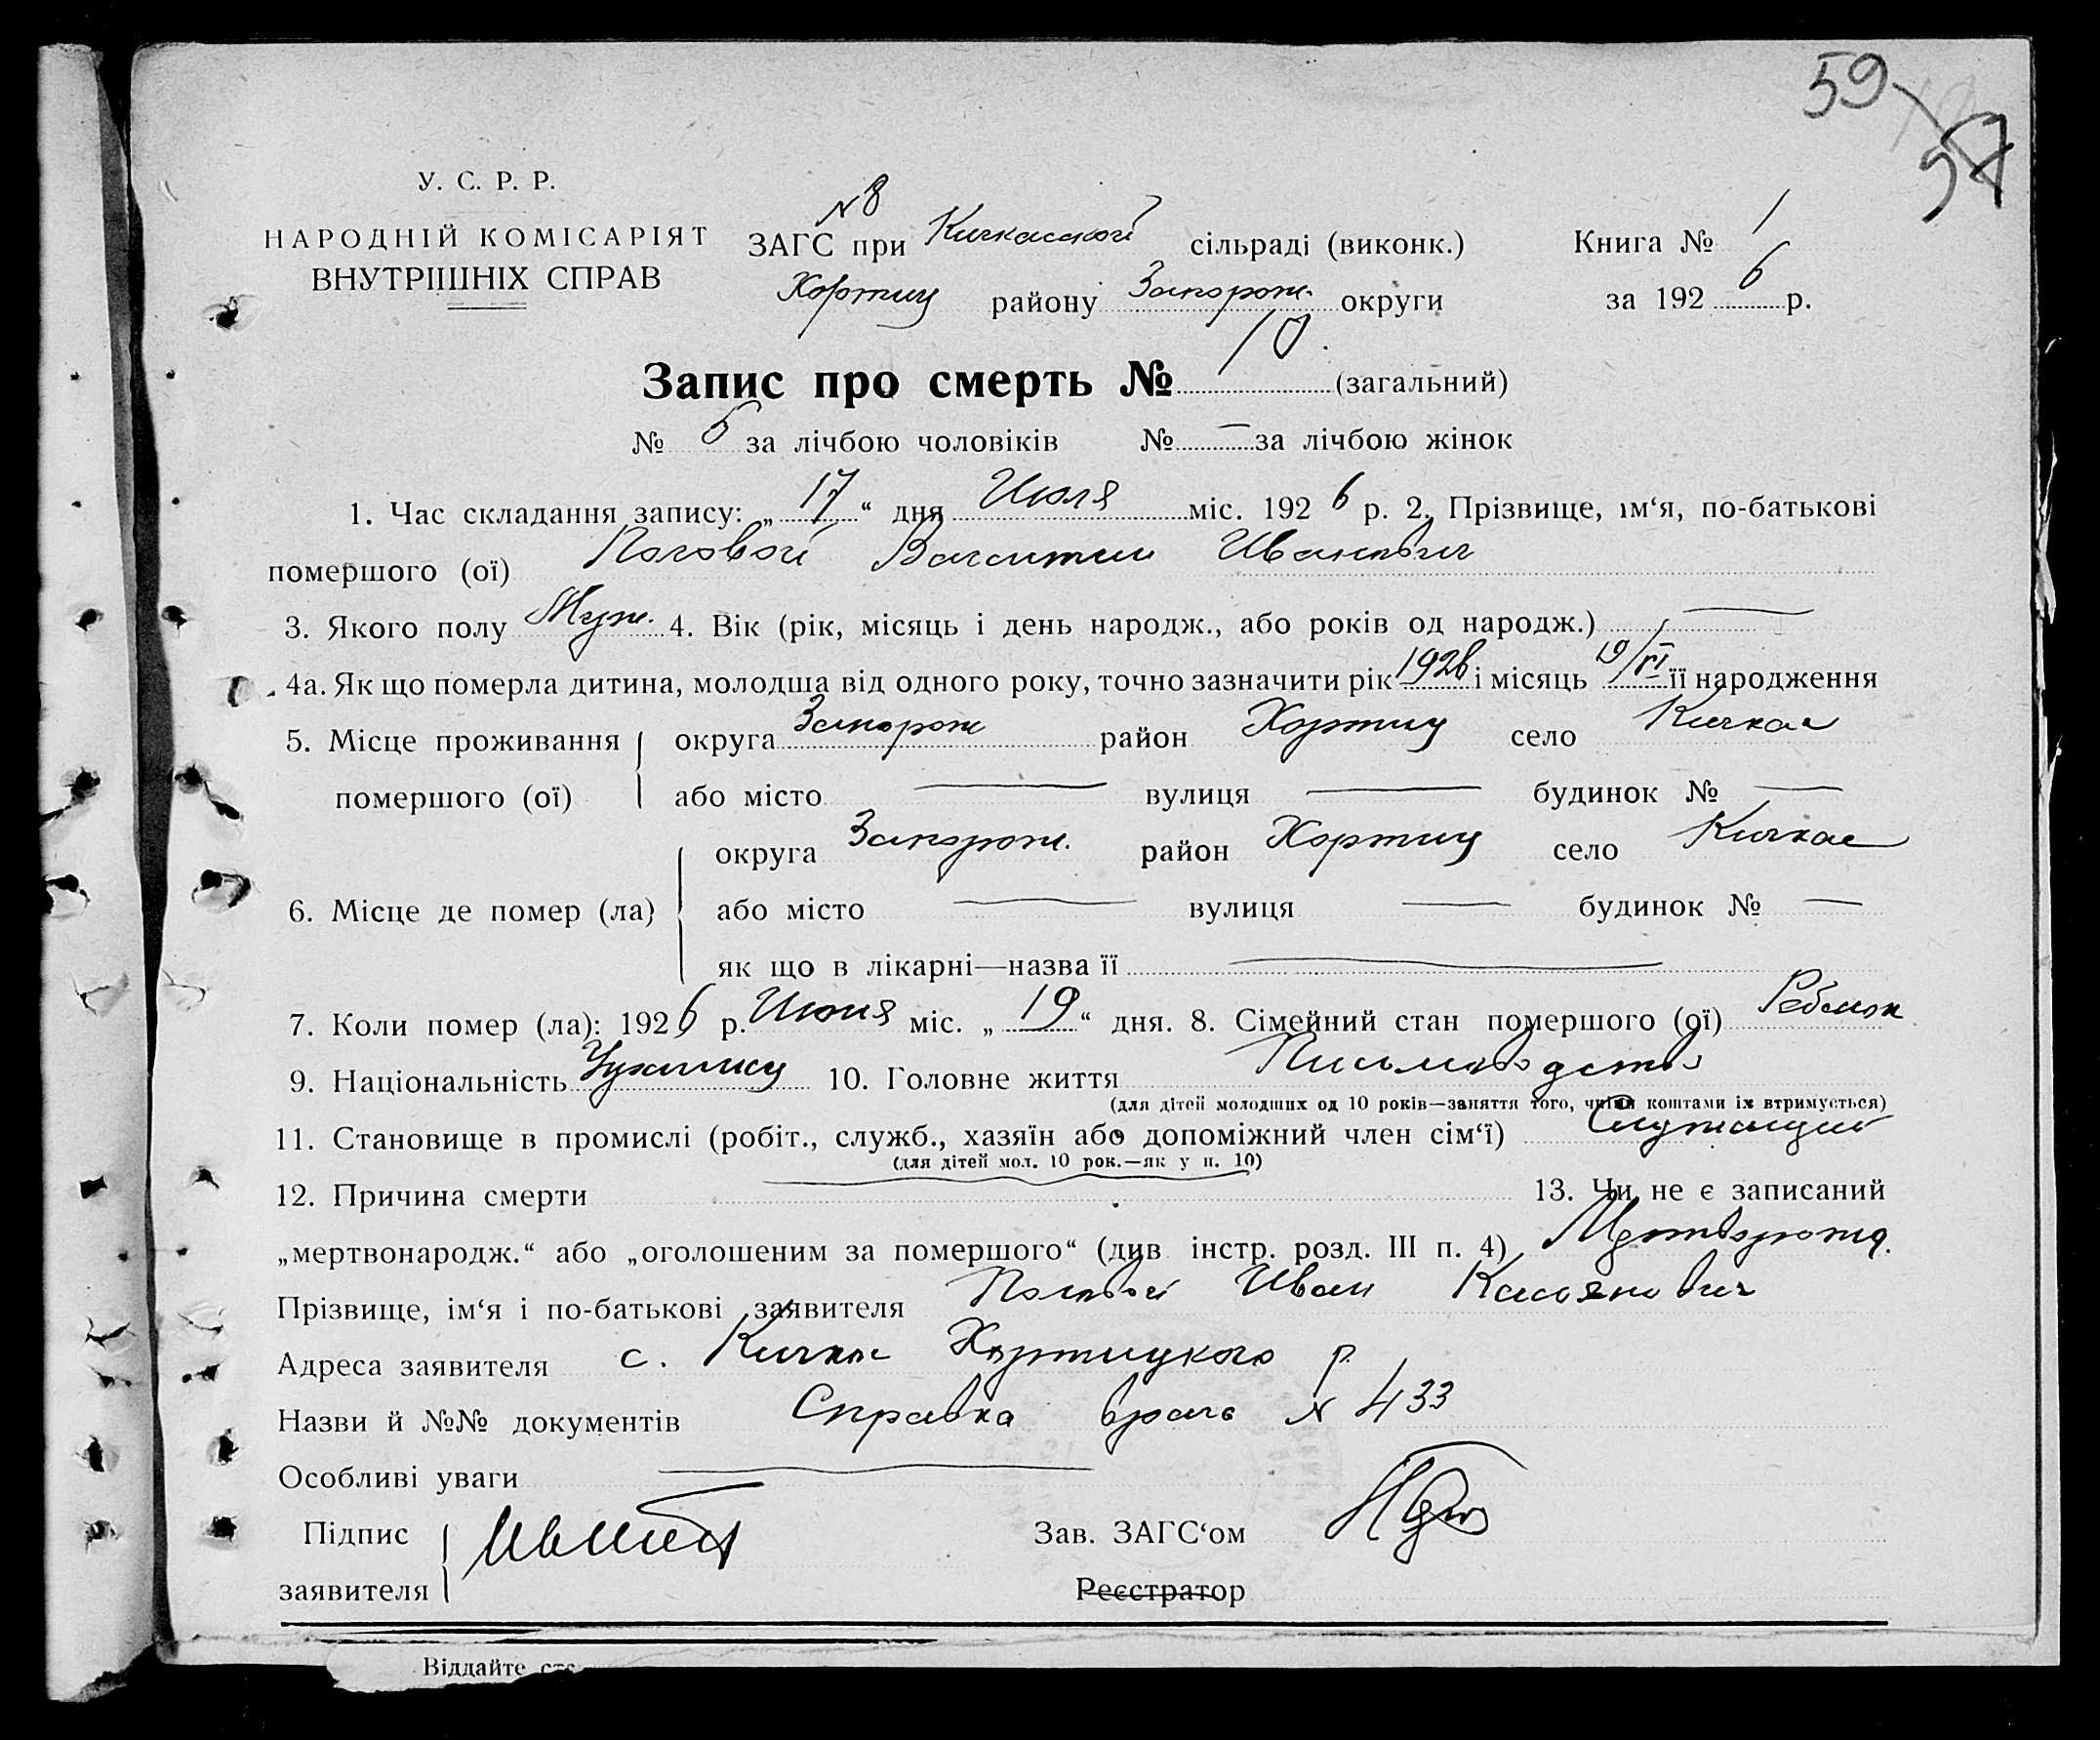 59
57
У. С. Р. Р.
НАРОДНІЙ КОМІСАРІЯТ
ВНУТРІШНІХ СПРАВ
N 8
ЗАГС при Кичкасской сільраді (виконк.)
Хортиц району Запорож. округи
Книга № 1
за 192 6 р.
Запис про смерть № 10. (загальний)
№ 6 за лічбою чоловіків № — за лічбою жінок
1. Час складання запису: „ 17 “ дня Июля міс. 192 6 р. 2. Прізвище, ім‘я, по-батькові
помершого (ої) Иванович
3. Якого полу Муж. 4. Вік (рік, місяць і день народж., або років од народж.) —
4а. Як що померла дитина, молодша від одного року, точно зазначити рік 1926 і місяць 19/VI її народження
5. Місце проживання помершого (ої) округа Запорож район Хортиц село Кичкас
або місто — вулиця — будинок № —
6. Місце де помер (ла) округа Запорож. район Хортиц село Кичкас
або місто — вулиця — будинок № —
як що в лікарні—назва її —
7. Коли помер (ла): 192 6 р. Июня міс. „ 19 “ дня. 8. Сімейний стан помершого (ої) Ребенок
9. Національність 10. Головне життя
(для дітей молодших од 10 років—заняття того, чиїми коштами їх втримується)
11. Становище в промислі (робіт., служб., хазяїн або допоміжний член сім‘ї) Служащий
(для дітей мол. 10 рок.—як у п. 10)
12. Причина смерти — 13. Чи не є записаний
„мертвонародж.“ або „оголошеним за помершого“ (див інстр. розд. III п. 4) Мертворожд.
Прізвище, ім‘я і по-батькові заявителя Иван Касьянович
Адреса заявителя с. Кичкас Хортицкого р.
Назви й №№ документів Справка врача N 433
Особливі уваги —
Підпис
заявителя
Зав. ЗАГС‘ом
Реєстратор
Віддайте